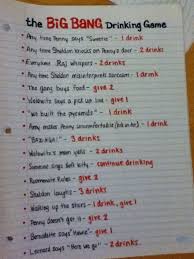 the BIG BANG Drinking Game
• Any time Penny says "Sweetie" - 1 drink
• Any time Sheldon knocks on Penny's door - 2 drinks
• Everytime Raj whispers - 2 drinks
• Any time Sheldon misinterprets sarcasm - 1 drink
• The gang buys food - give 2
• Wolowitz says a pick up line - give 1
• "We built the pyramids" - 1 drink
• Amy makes Penny uncomfortable - 1 drink
• "BAZINGA!" - 3 drinks
• Wolowitz's mom yells - 2 drinks
• Someone sings soft kitty - continue drinking
• Roommate Rules - give 2
• Sheldon laughs - 3 drinks
• Walking up the stairs - 1 drink, give 1
• Penny doesn't get it - give 2
• Bernadette says "Howie" - give 1
• Leonard says "Here we go" - 2 drinks